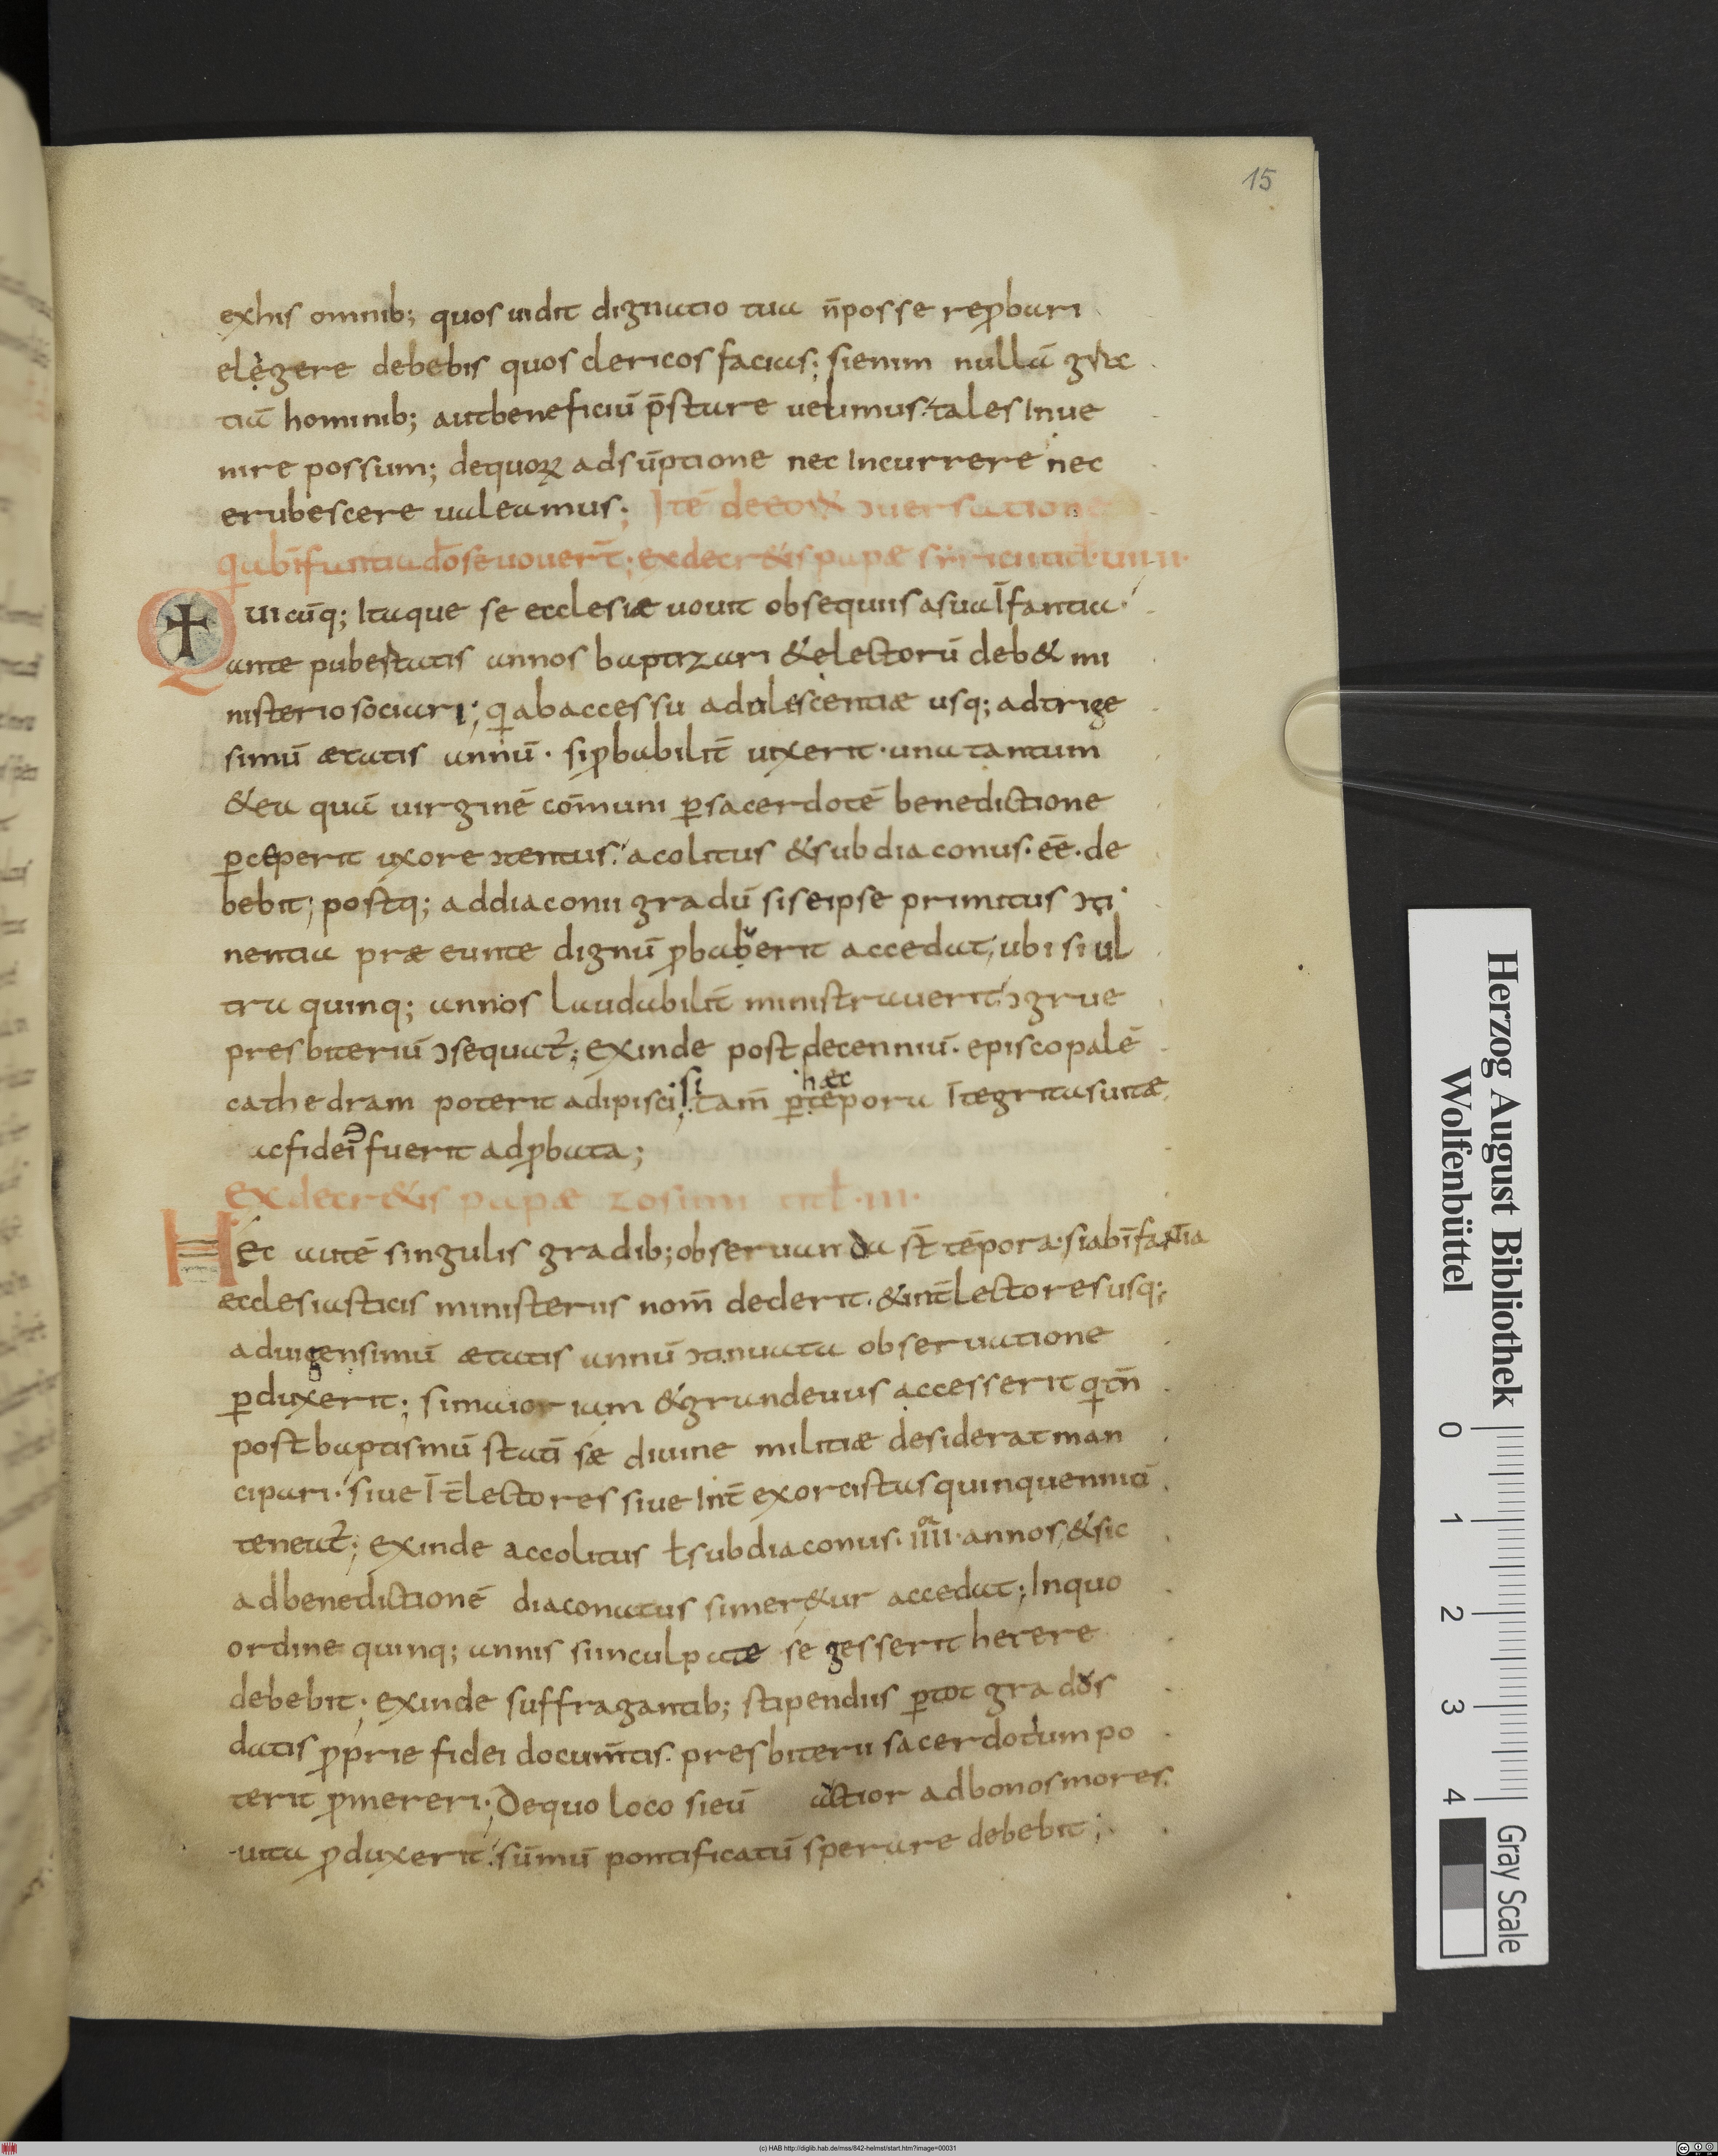 15
exhis omnib; quos uidit dignatio tua n̄posse rep̱bari
elegere debebis quos clericos facias; sienim nullā gra
tiā hominib; autbeneficiū p̄stare uelimus. tales Inue
nire possum; dequoꝝ adsūptione nec Incurrere nec
erubescere ualeamus; Itē deeoꝝ ɔuersatione
qui abīfantia dōseuouerīt; exdecr&is papæ siricii titl̄ uiiii.
Quicūq; Itaque se ecclesiæ uouit obsequiis asuaīfantia.
ante pubertatis annos baptizari &electorū deb& mi
nisterio sociari; qui abaccessu adulescentiæ usq; adtrige
simū ætatis annū. siꝓbabilit̄ uixerit. una tantum
&ea quā uirginē cōmuni ꝑsacerdotē benedictione
ꝑceperit uxore ɔtentus. acolitus &subdiaconus. eē. de
bebit; postq; addiaconii gradū siseipse primitus ɔti
nentia præeunte dignū ꝓbauerit accedat; ubi si ul
tra quinq; annos laudabilit̄ ministrauerit ɔgrue
presbiteriū ɔsequat̄; exinde post decenniū. episcopalē
cathedram poterit adipisci; si tam̄ ꝑ hæc tēpora Itegritas uitæ
acfidei fuerit adꝓbata;
exdecr&is papæ zosimi titl̄ .iii.
Hec autē singulis gradib; obseruanda st̄ tēpora. siabīfantia
ecclesiasticis ministeriis nom̄ dederit. &int̄ lectores usq;
aduigensimū ætatis annū ɔtinuata obseruatione
ꝑduxerit; simaior iam &grandeuus accesserit qui tn̄
post baptismū statī sæ diuine militiæ desiderat man
cipari. siue Īt̄ lectores siue Int̄ exorcistas quinquenniū
teneat̄; exinde accolitus ł subdiaconus. iiiior annos, &sic
adbenedictionē diaconatus simer&ur accedat; Inquo
ordine quinq; annis siinculpatæ se gesserit herere
debebit. exinde suffragantib; stipendiis ꝑtot grados
datis ꝓprie fidei docum̄tis. presbiterii sacerdotium po
terit ꝓmereri; Dequo loco sieū actior adbonosmores
uita ꝓduxerit. sūmū pontificatū sperare debebit;
Herzog August Bibliothek
Wolfenbüttel
0 1 2 3 4
Gray Scale
(c) HAB http://diglib.hab.de/mss/842-helmst/start.htm?image=00031